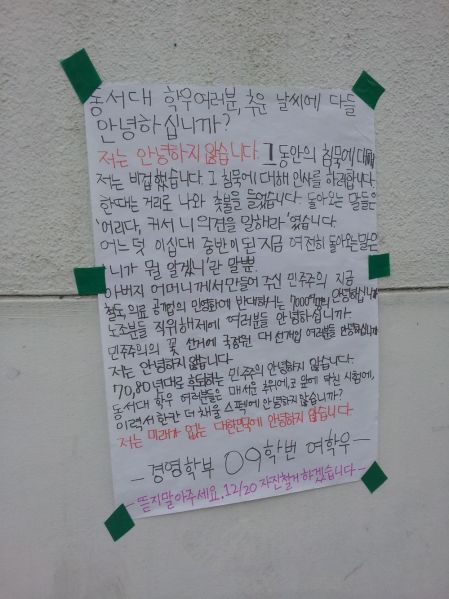 동서대 학우여러분, 추운 날씨에 다들
안녕하십니까?
저는 안녕하지 않습니다. 그 동안의 침묵에 대해
저는 비겁했습니다. 그 침묵에 대해 인사를 하려합니다.
한때는 거리로 나와 촛불을 들었습니다. 돌아오는 말들은
'어리다, 커서 니 의견을 말해라' 였습니다.
어느덧 이십대 중반이 된 지금 여전히 돌아오는 말은
'니가 뭘 알겠니'란 말뿐.
아버지 어머니께서 만들어 주신 민주주의 지금
철도, 의료 공기업의 민영화에 반대하는 7000여명의 안녕하십니까
노조분들 직위해제에 여러분들 안녕하십니까.
민주주의의 꽃 선거에 국정원 대선개입 여러분들 안녕하십니까
저는 안녕하지 않습니다.
70,80년대로 후퇴하는 민주주의 안녕하지 않습니다.
동서대 학우 여러분들은 매서운 추위에, 코 앞에 닥친 시험에,
이력서 한칸 더 채울 스펙에 안녕하지 않습니까?
저는 미래가 없는 대한민국에 안녕하지 않습니다
- 경영학부 09학번 여학우 -
- 뜯지말아주세요. 12/20 자진철거 하겠습니다 -